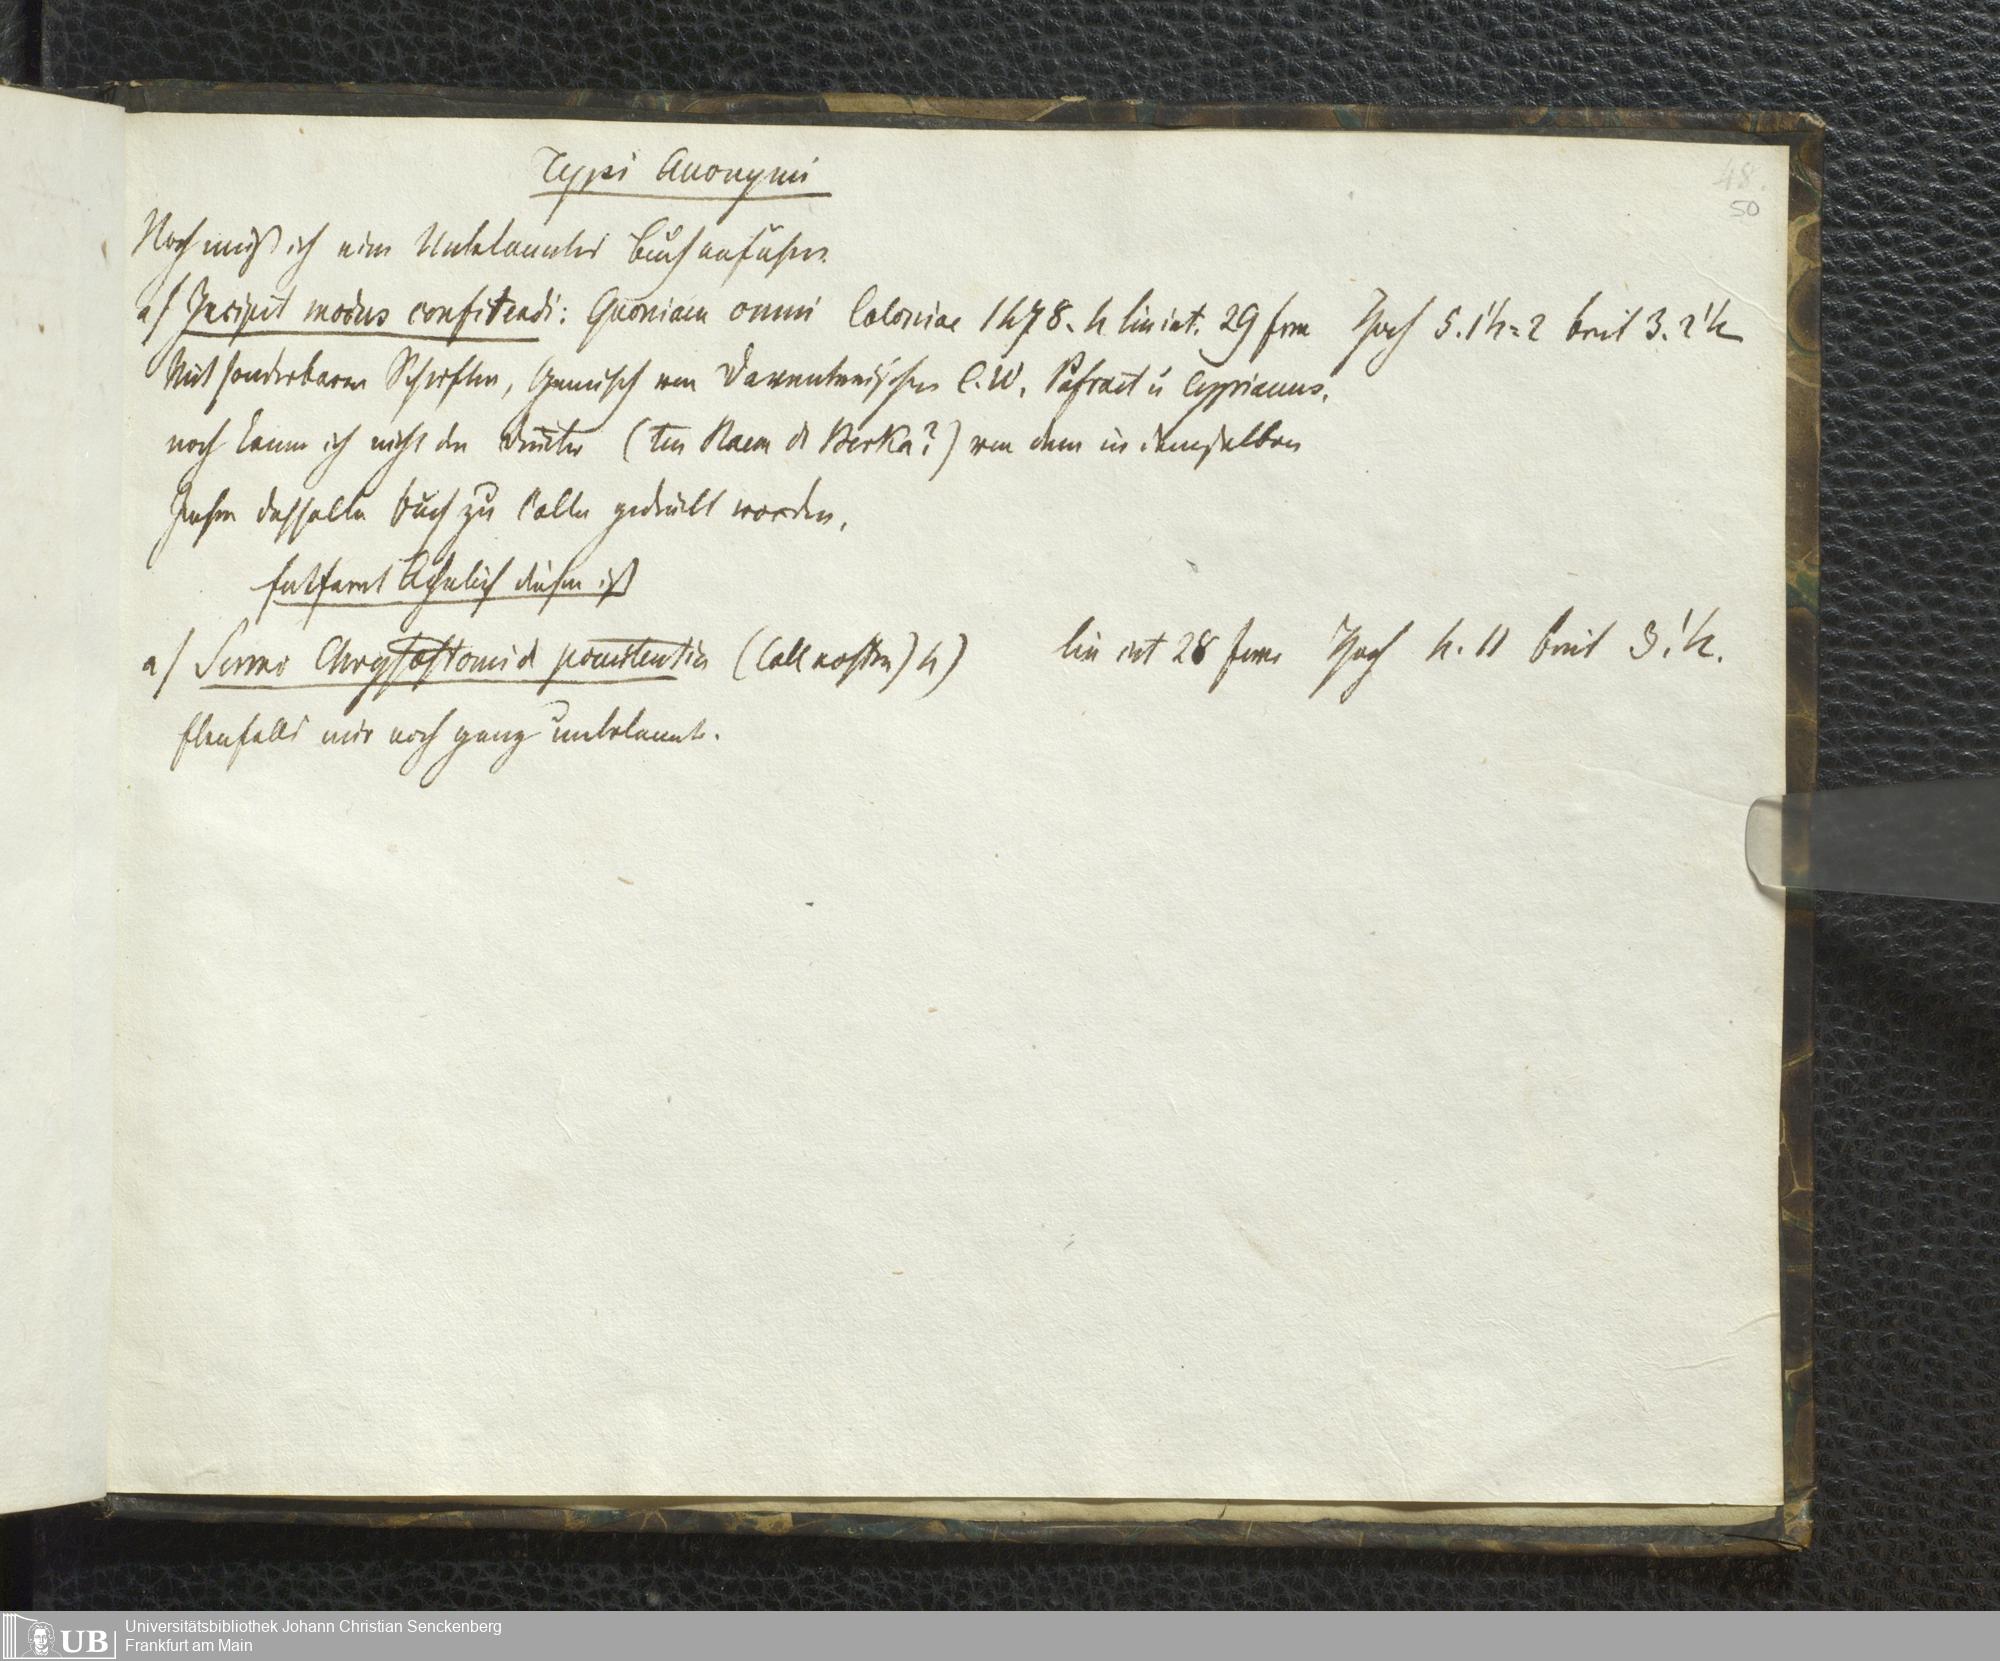 Typi Anonymi
48.
50
Noch muß ich ein Unbekanntes Buch anführen
a) Incipit modus confitendi: Quoniam omni Coloniae 1478. 4 lin int. 29 form Hoch 5. 1'4=2 breit 3. 2'4
Mit sonderbaren Schriften, Gemisch von Daventerischen C.W. Pafraet u Cyprianus.
noch kenn ich nicht den Drucker (ten Raem de Berka?) von dem in demselben
Jahre dasselbe Buch zu Cölln gedruckt worden.
Entfernt Aehnlich diesem ist
a) Sermo Chrysostomi d poenitentia (Cell nostra) 4) lin int 28 form Hoch 4. 11 breit 3.'4.
Ebenfalls mir noch ganz unbekannt.
UB
Universitätsbibliothek Johann Christian Senckenberg
Frankfurt am Main